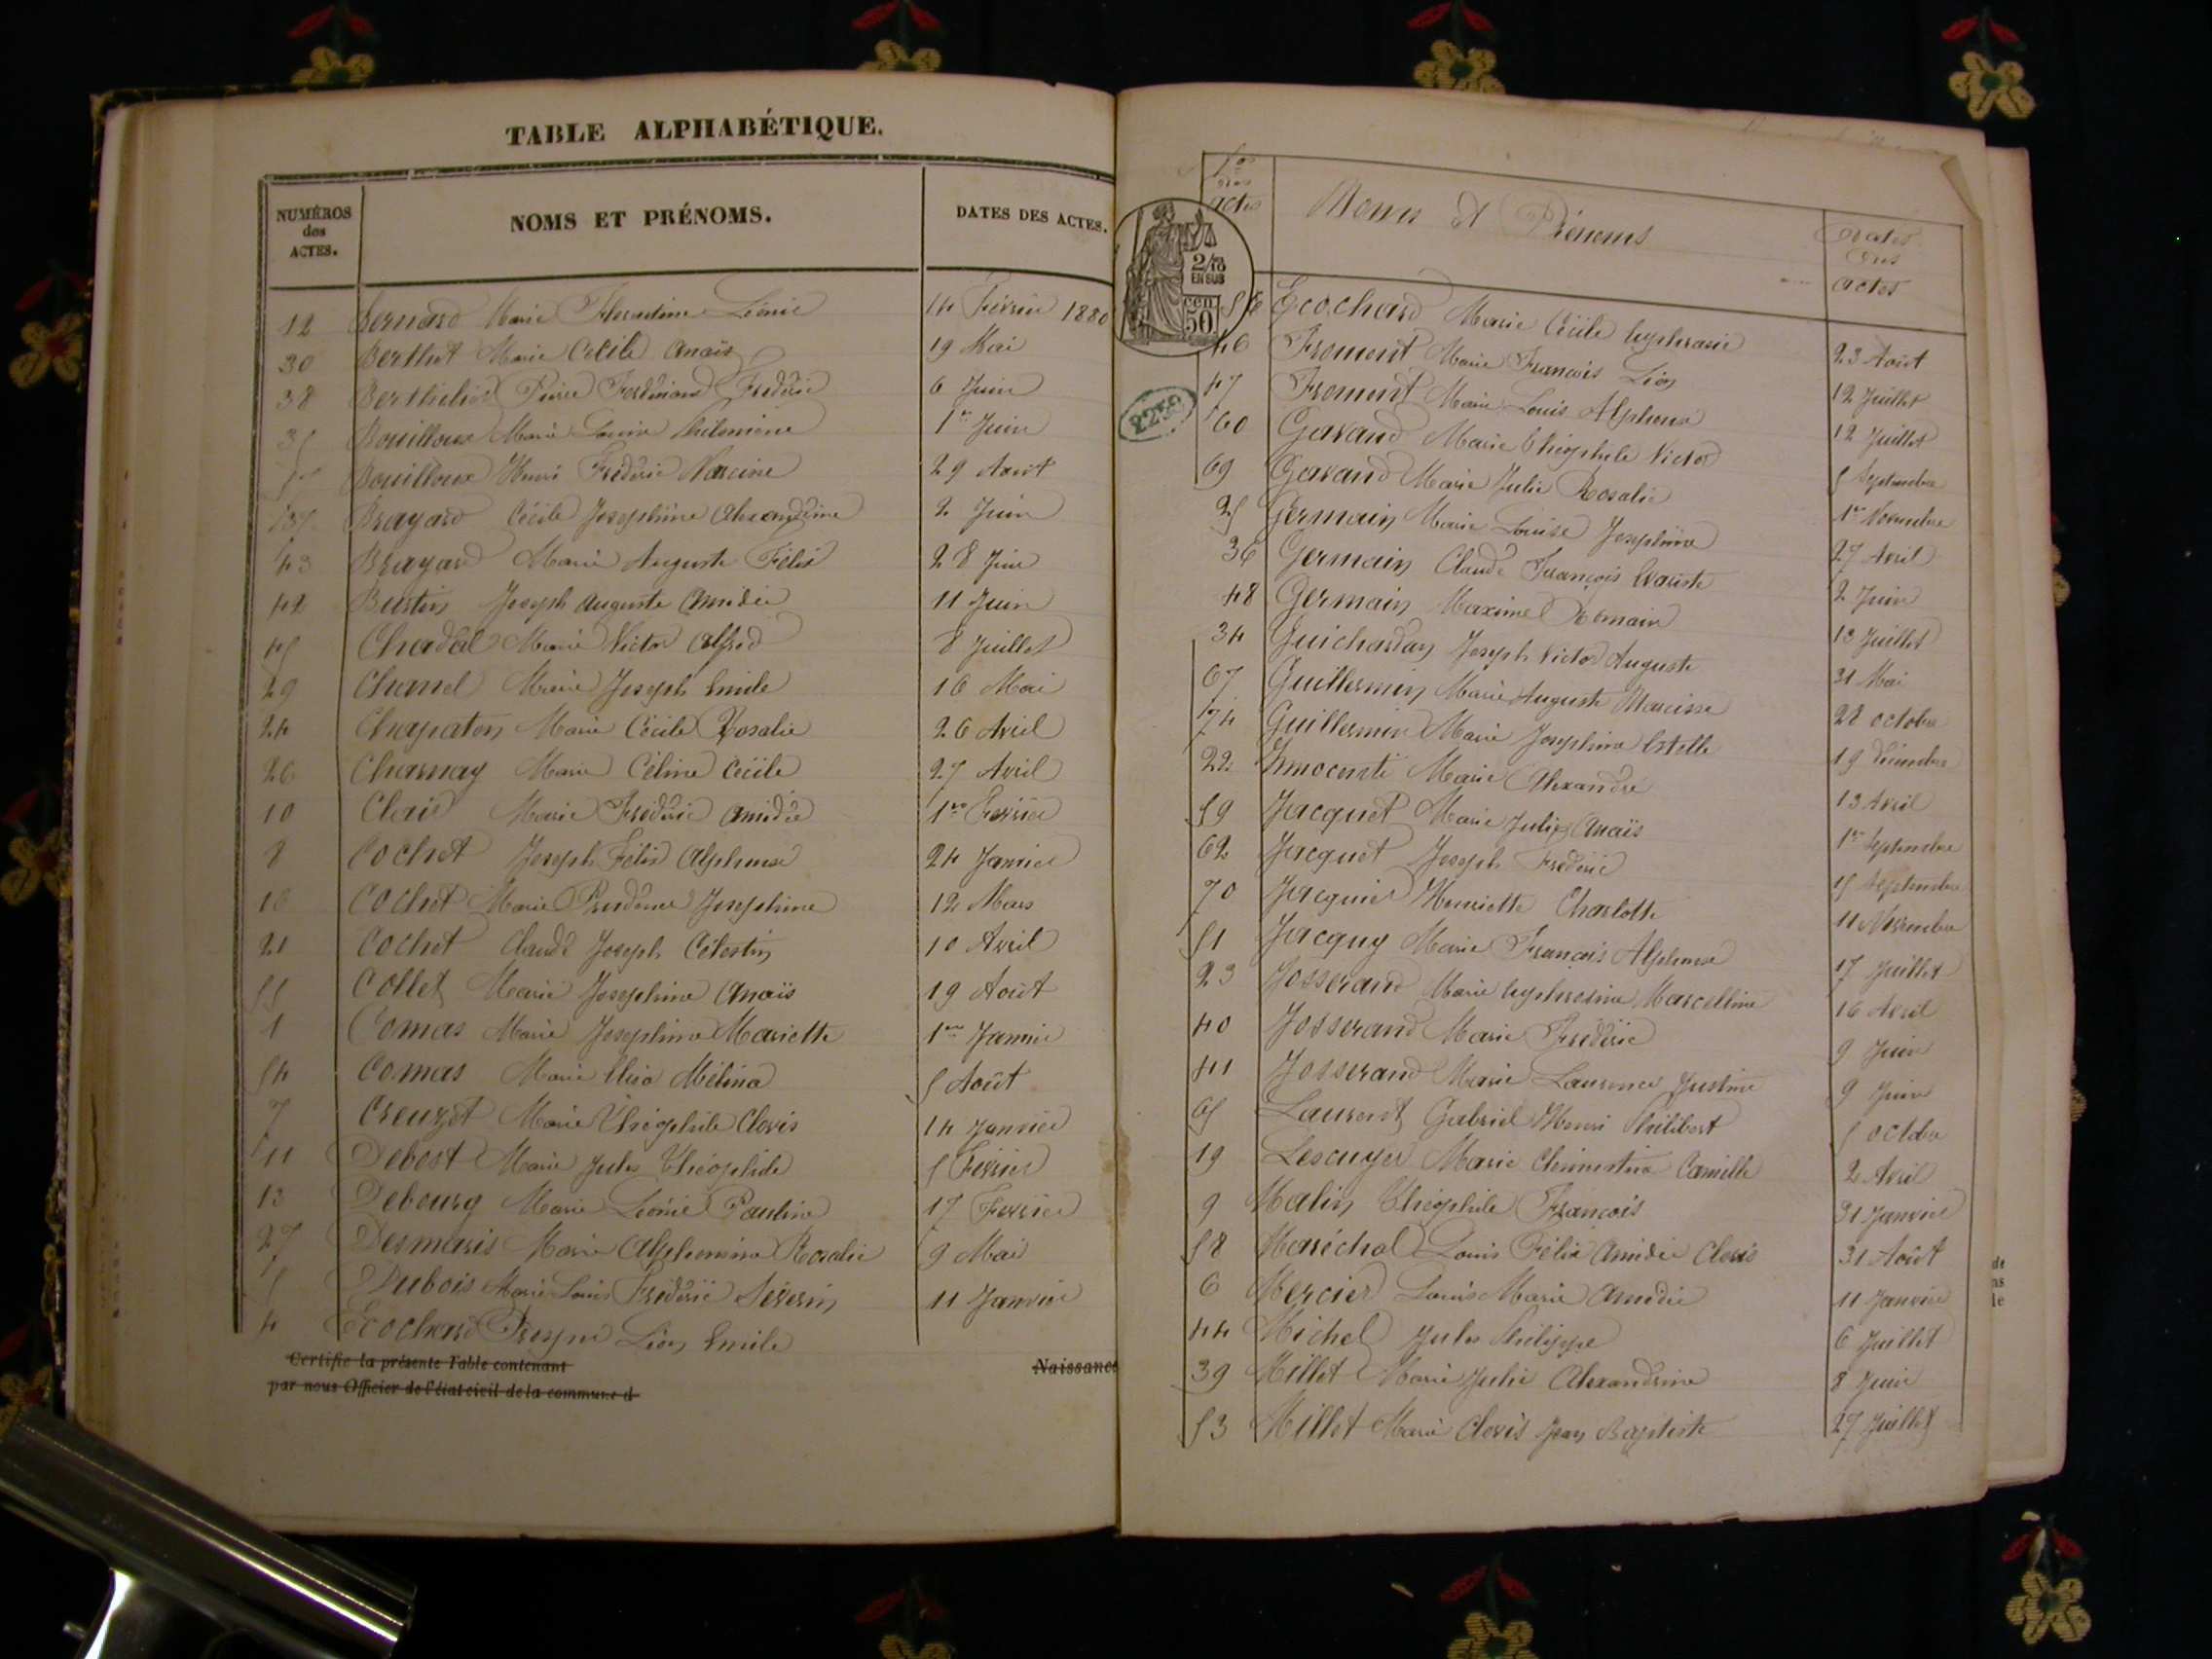 TABLE ALPHABÉTIQUE.
NUMÉROS des ACTES. NOMS ET PRÉNOMS. DATES DES ACTES.
12 Bernard Marie Florentine Léonie 14 Février 1880
30 Berthet Marie Cécile Anaïs 19 Mai
38 Berthelier Pierre Ferdinand Frédéric 6 Juin
35 Bouilloux Marie Louise Philomène 1er Juin
Bouilloux Henri Frédéric Narcisse 29 Août
37 Brayard Cécile Joséphine Alexandrine 2 Juin
43 Brayard Marie Auguste Félix 28 Juin
42 Bustin Joseph Auguste Amédée 11 Juin
45 Chadal Marie Victor Alfred 8 Juillet
29 Chanel Marie Joseph Emile 16 Mai
24 Chapaton Marie Cécile Rosalie 26 Avril
26 Charnay Marie Céline Cécile 27 Avril
10 Clair Marie Frédéric Amédée 1er Février
8 Cochet Joseph Félix Alphonse 24 Janvier
16 Cochet Marie Prudence Joséphine 12 Mars
21 Cochet Claude Joseph Célestin 10 Avril
55 Collet Marie Joséphine Anaïs 19 Août
1 Comas Marie Joséphine Mariette 1er Janvier
54 Comas Marie Elisa Mélina 5 Août
7 Creuzet Marie Théophile Clovis 14 Janvier
11 Debost Marie Jules Théophile 5 Février
13 Debourg Marie Léonie Pauline 17 Février
27 Desmaris Marie Alphonsine Rosalie 9 Mai
5 Dubois Marie Louis Frédéric Séverin 11 Janvier
4 Ecochard Léon Emile
Certifie la présente Table contenant Naissance
par nous Officier de l'état civil de la commune d
actes Noms et Prénoms Dates des actes
2/10 EN SUS
50 cen
2259
56 Ecochard Marie Cécile Euphrasie 23 Août
46 Froment Marie François Léon 12 Juillet
47 Froment Marie Louis Alphonse 12 Juillet
60 Gavand Marie Théophile Victor 5 Septembre
69 Gavand Marie Julie Rosalie 1er Novembre
25 Germain Marie Louise Joséphine 27 Avril
36 Germain Claude François Evariste 2 Juin
48 Germain Maxime Romain 13 Juillet
34 Guichardan Joseph Victor Auguste 31 Mai
67 Guillermin Marie Auguste Narcisse 28 octobre
74 Guillermin Marie Joséphine Estelle 19 Décembre
22 Innocenti Marie Alexandre 13 Avril
59 Jacquet Marie Julie Anaïs 1er Septembre
62 Jacquet Joseph Frédéric 15 Septembre
70 Jacquier Henriette Charlotte 11 Novembre
51 Jacquy Marie François Alphonse 17 Juillet
23 Josserand Marie Euphrosine Marcelline 16 Avril
40 Josserand Marie Frédéric 9 Juin
41 Josserand Marie Laurence Justine 9 Juin
65 Laurent Gabriel Henri Philibert 5 octobre
19 Lescuyer Marie Clémentine Camille 2 Avril
9 Malin Théophile François 31 Janvier
58 Maréchal Louis Félix Amédée Clovis 31 Août
6 Mercier Louis Marie Amédée 11 Janvier
44 Michel Jules Philippe 6 Juillet
39 Millet Marie Julie Alexandrine 8 Juin
53 Millet Marie Clovis Jean Baptiste 27 Juillet